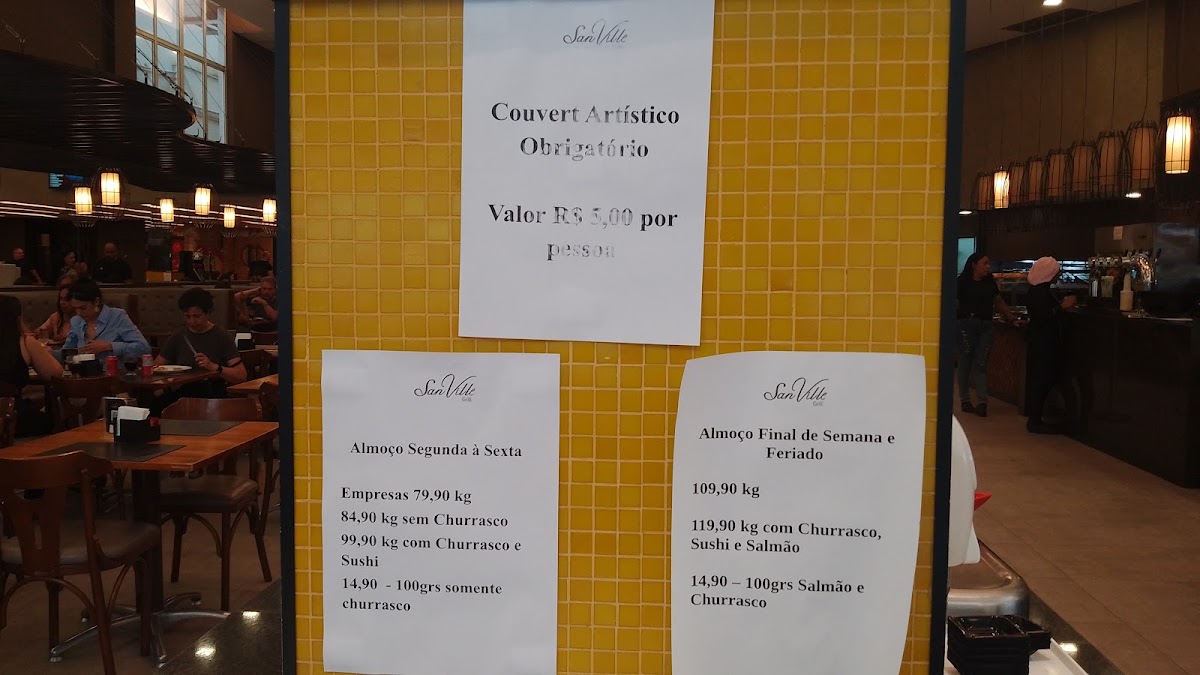 San Ville
Couvert Artístico
Obrigatório
Valor R$ 5,00 por
pessoa
San Ville
Grill
Almoço Segunda à Sexta
Empresas 79,90 kg
84,90 kg sem Churrasco
99,90 kg com Churrasco e
Sushi
14,90 - 100grs somente
churrasco
San Ville
Grill
Almoço Final de Semana e
Feriado
109,90 kg
119,90 kg com Churrasco,
Sushi e Salmão
14,90 – 100grs Salmão e
Churrasco